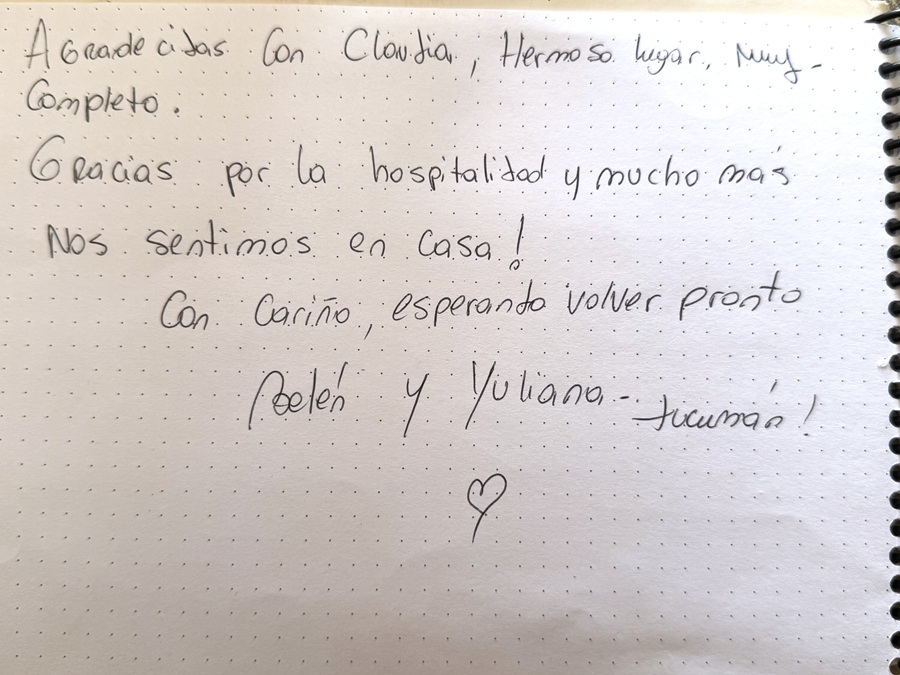 Agradecidas con Claudia, Hermoso lugar, muy-
Completo.
Gracias por la hospitalidad y mucho más
Nos sentimos en casa!
Con Cariño, esperando volver pronto
Belén y Yuliana - tucumán!